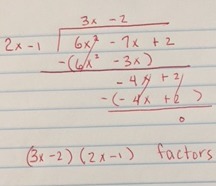 3x - 2
2x - 1 6x² - 7x + 2
-(6x² - 3x)
- 4x + 2
-(- 4x + 2)
0
(3x-2)(2x-1) factors